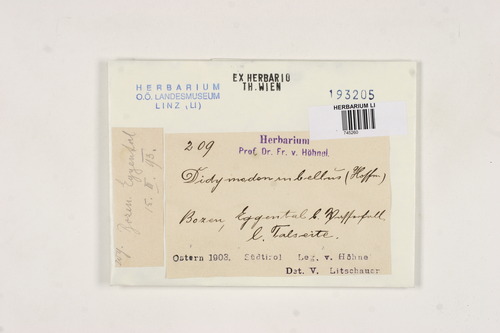 HERBARIUM
O.Ö. LANDESMUSEUM
LINZ (LI)
EX HERBARIO
TH. WIEN
193205
HERBARIUM LI
745260
209
Herbarium
Prof. Dr. Fr. v. Höhnel.
Didymodon rubellus (Hoffm)
Bozen, Eggental b. Wasserfall
l. Talseite.
Ostern 1903. Südtirol Leg. v. Höhne
Det. V. Litschauer
Bozen. Eggental
15. II. 03.